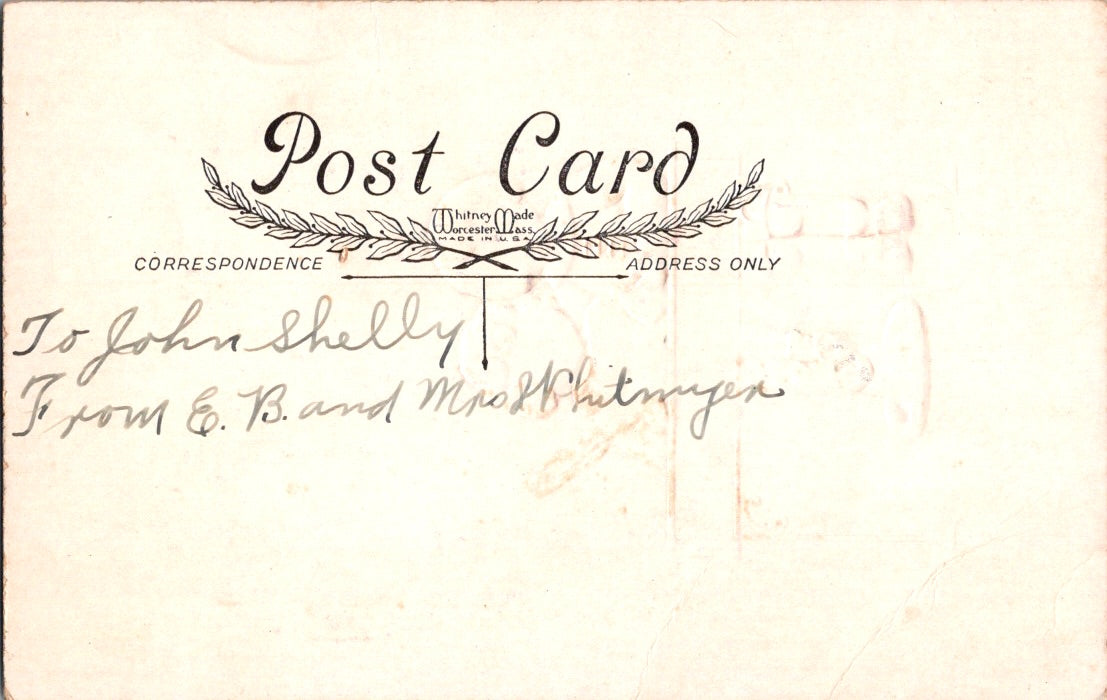 Post Card
Whitney Made
Worcester, Mass.
MADE IN U.S.A.
CORRESPONDENCE
ADDRESS ONLY
To John Shelly
From E. B. and Mrs Whitmyer